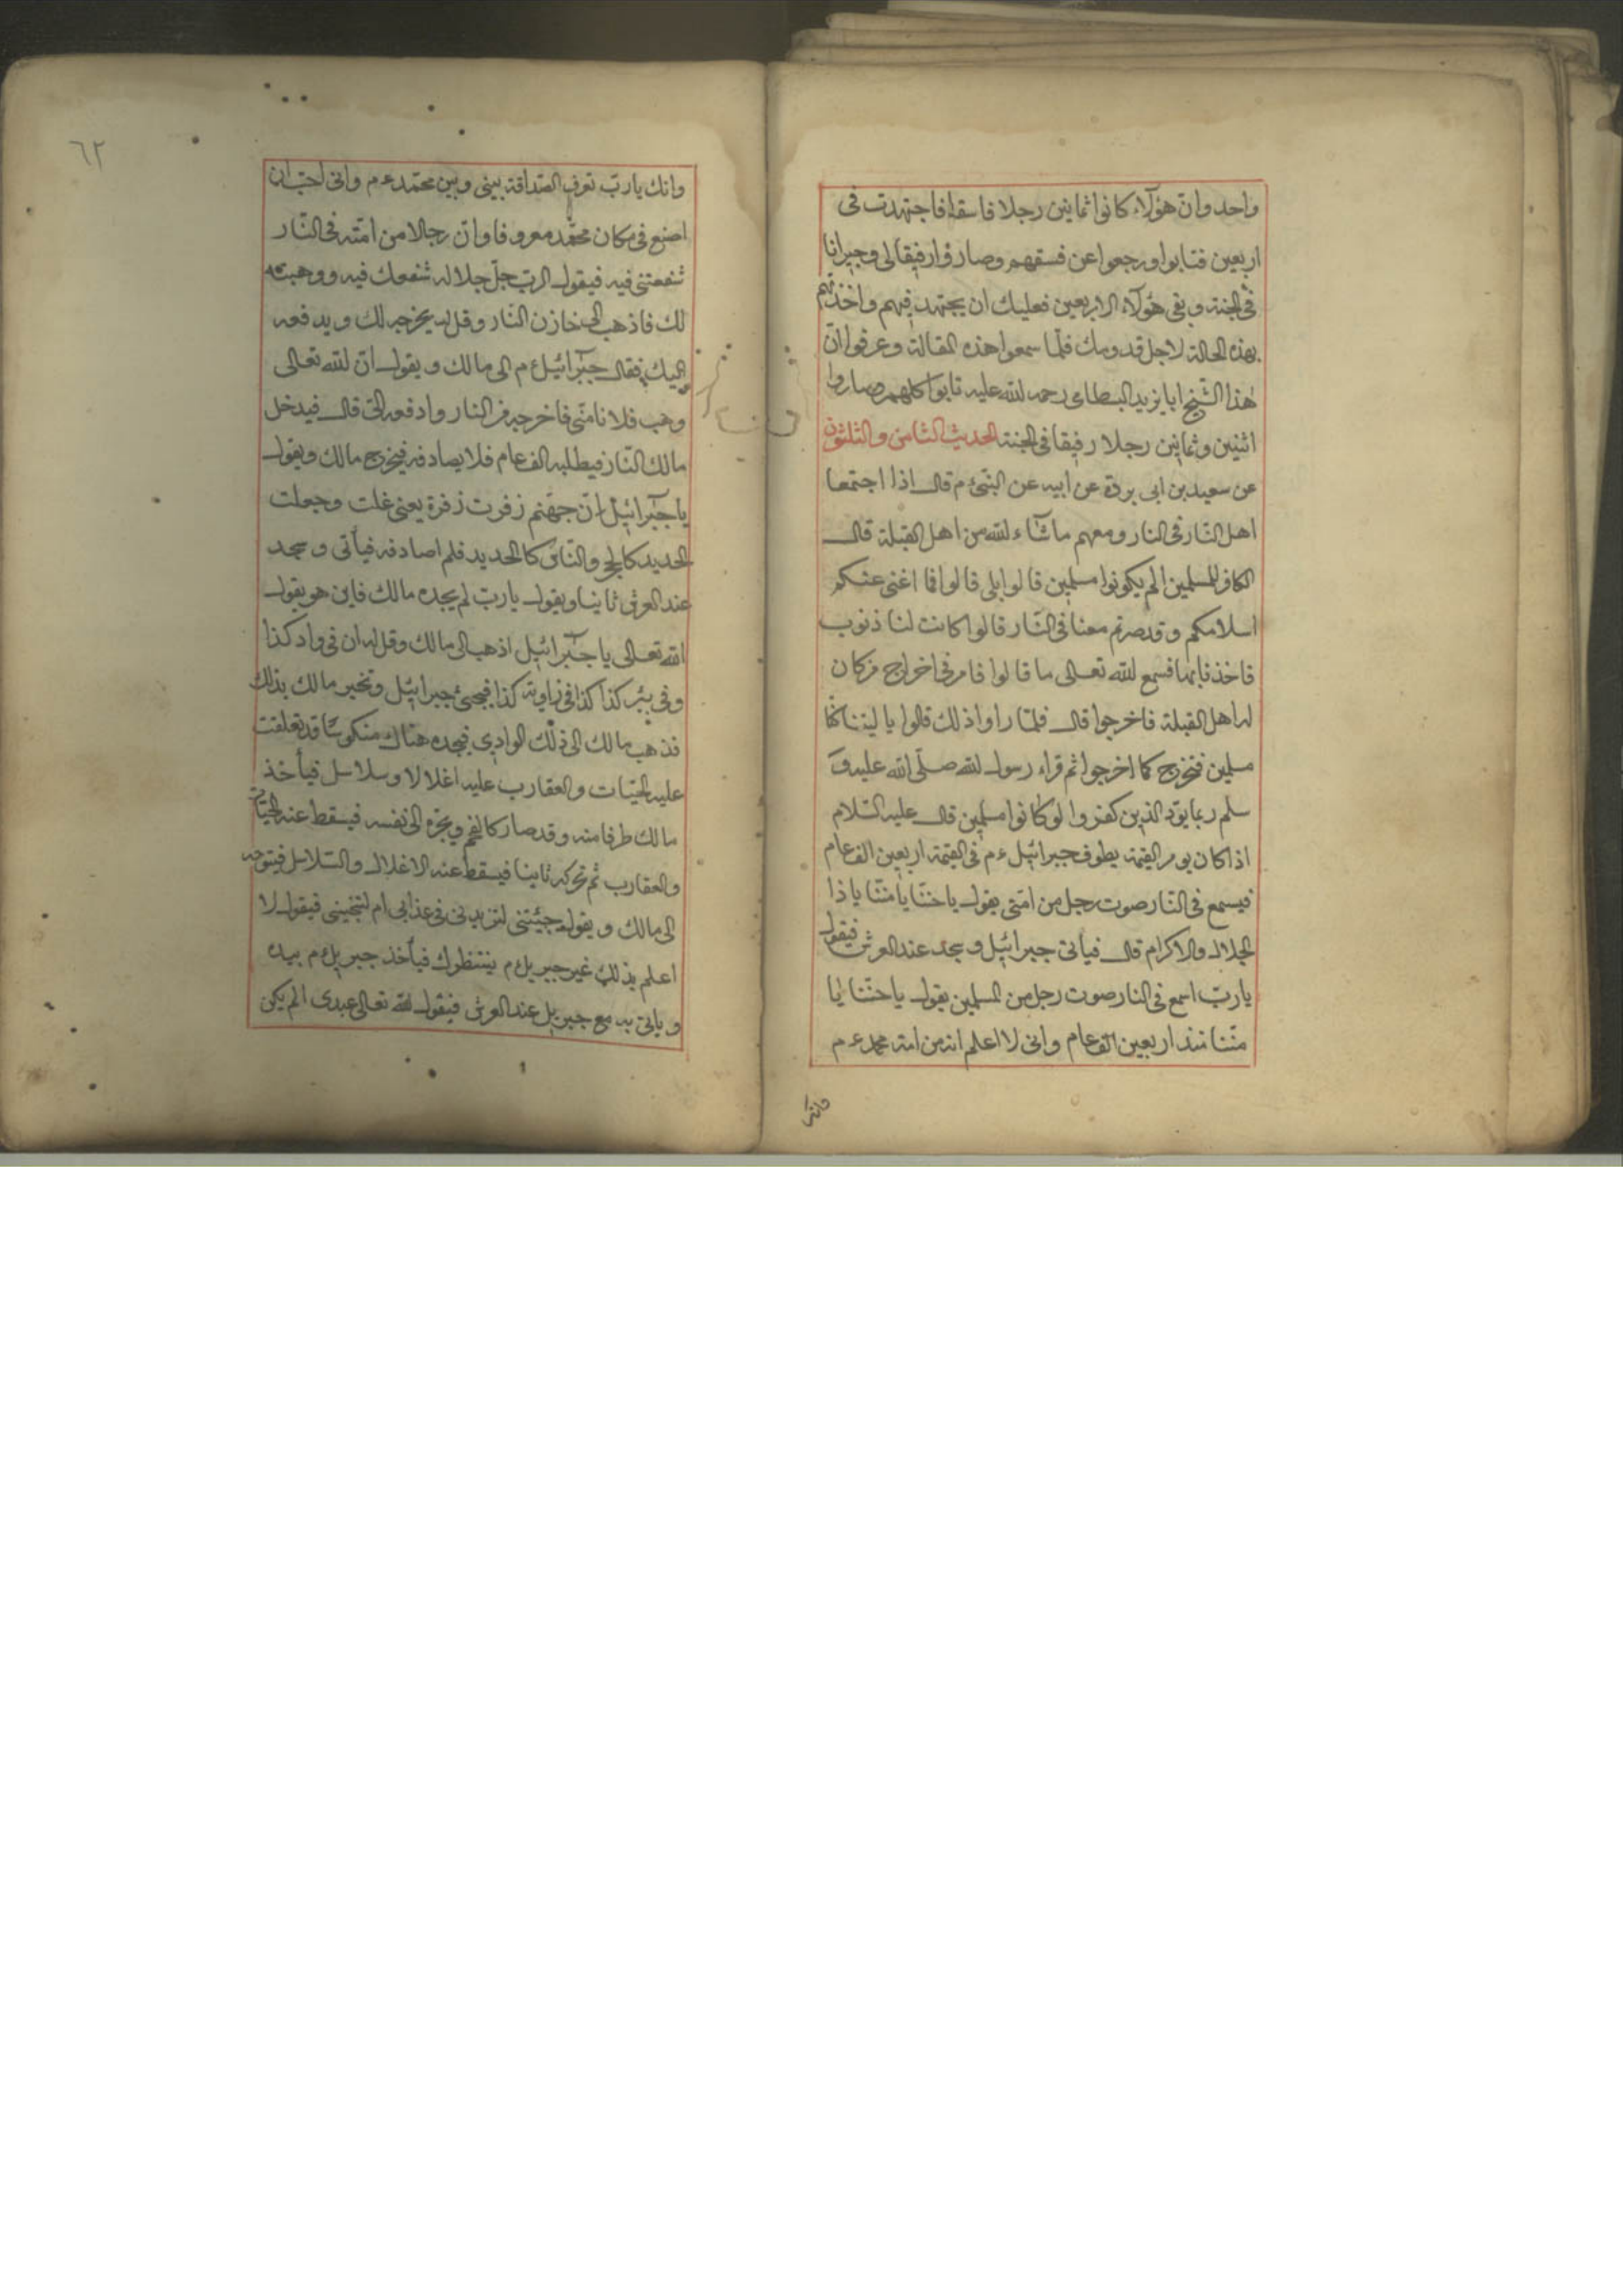 واحد وان هؤلاء كانوا ثمانين رجلا فاسقا فاجتهدت فى
اربعين فتابوا ورجعوا عن فسقهم وصاروا رفيقا لى وجيرانا
فى الجنة وبقى هؤلاء الاربعين فعليك ان يجتهد فيهم واخذتهم
بهذه الحالة لاجل قدومك فلما سمعوا هذه المقالة وعرفوا ان
هذا الشيخ ابا يزيد البسطامى رحمه الله عليه تابوا كلهم وصاروا
اثنين وثمانين رجلا رفيقا فى الجنة الحديث الثامن والثلثون
عن سعيد بن ابى بردة عن ابيه عن النبى ء م قال اذا اجتمعا
اهل النار فى النار ومعهم ما شاء الله من اهل القبلة قال
الكافر للمسلمين الم يكونوا مسلمين قالوا بلى قالوا فما اغنى عنكم
اسلامكم وقد صرتم معنا فى النار قالوا كانت لنا ذنوب
فاخذنا بها فسمع الله تعالى ما قالوا فامر فى اخراج من كان
له اهل القبلة فاخرجوا قال فلما راوا ذلك قالوا يا ليتنا كنا
مسلمين فنخرج كما اخرجوا ثم قراء رسول الله صلى الله عليه و
سلم ربما يود الذين كفروا لو كانوا مسلمين قال عليه السلام
اذا كان يوم القيمة يطوف جبرائيل ء م فى القيمة اربعين الف عام
فيسمع فى النار صوت رجل من امتى يقول يا حنا يا منا يا ذا
الجلال والاكرام قال فياتى جبرائيل وسجد عند العرش فيقول
يا رب اسمع فى النار صوت رجل من المسلمين يقول يا حنا يا
منا منذ اربعين الف عام وانى لا اعلم انه من امة محمد ء م
وانك
٦٢
وانك يا رب تعرف الصداقة بينى وبين محمد ء م وانى احب ان
اصنع فى مكان محمد معروفا وان رجلا من امته فى النار
شفعتنى فيه فيقول الرب جل جلاله شفعك فيه ووهبته
لك فاذهب الى خازن النار وقل له يخرجه لك ويدفعه
اليك فقال جبرائيل ء م الى مالك ويقول ان لله تعالى
وهب فلانا منى فاخرجه من النار وادفعه الى قال فيدخل
مالك النار فيطلبه الف عام فلا يصادفه فيخرج مالك ويقول
يا جبرائيل ان جهنم زفرت زفرة يعنى غلت وجعلت
الحديد كالحجر والناس كالحديد فلم اصادفه فيأتى وسجد
عند العرش ثانيا ويقول يا رب لم يجده مالك فاين هو يقول
الله تعالى يا جبرائيل اذهب الى مالك وقل له ان فى واد كذا
وفى بئر كذا كذا فى زاوية كذا فيجئ جبرائيل وتخبر مالك بذلك
فذهب مالك الى ذلك الوادى فيجده هناك منكوسا قد تعلقت
عليه الحيات والعقارب عليه اغلالا وسلاسل فيأخذ
مالك طرفا منه وقد صار كالفحم ويجره الى نفسه فيسقط عنه الحيات
والعقارب ثم تحركه ثانيا فيسقط عنه الاغلال والسلاسل فيتوجه
الى مالك ويقول جئتنى لتزيدنى فى عذابى ام لتنجينى فيقول لا
اعلم بذلك غير جبريل ء م ينتظرك فيأخذ جبريل ء م بيده
وياتى به مع جبريل عند العرش فيقول الله تعالى عبدى الم يكن